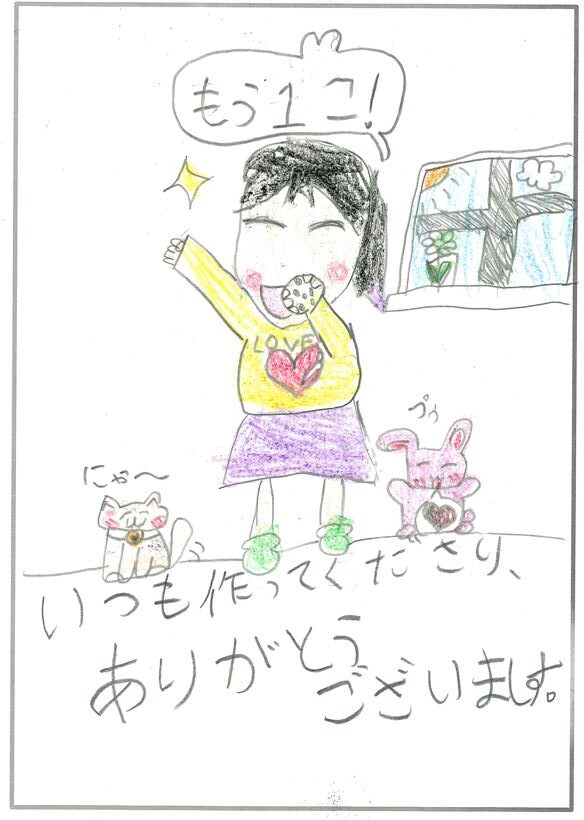 もう1コ！
LOVE
プゥ
にゃ〜
いつも作ってくださり、
ありがとう
ございます。